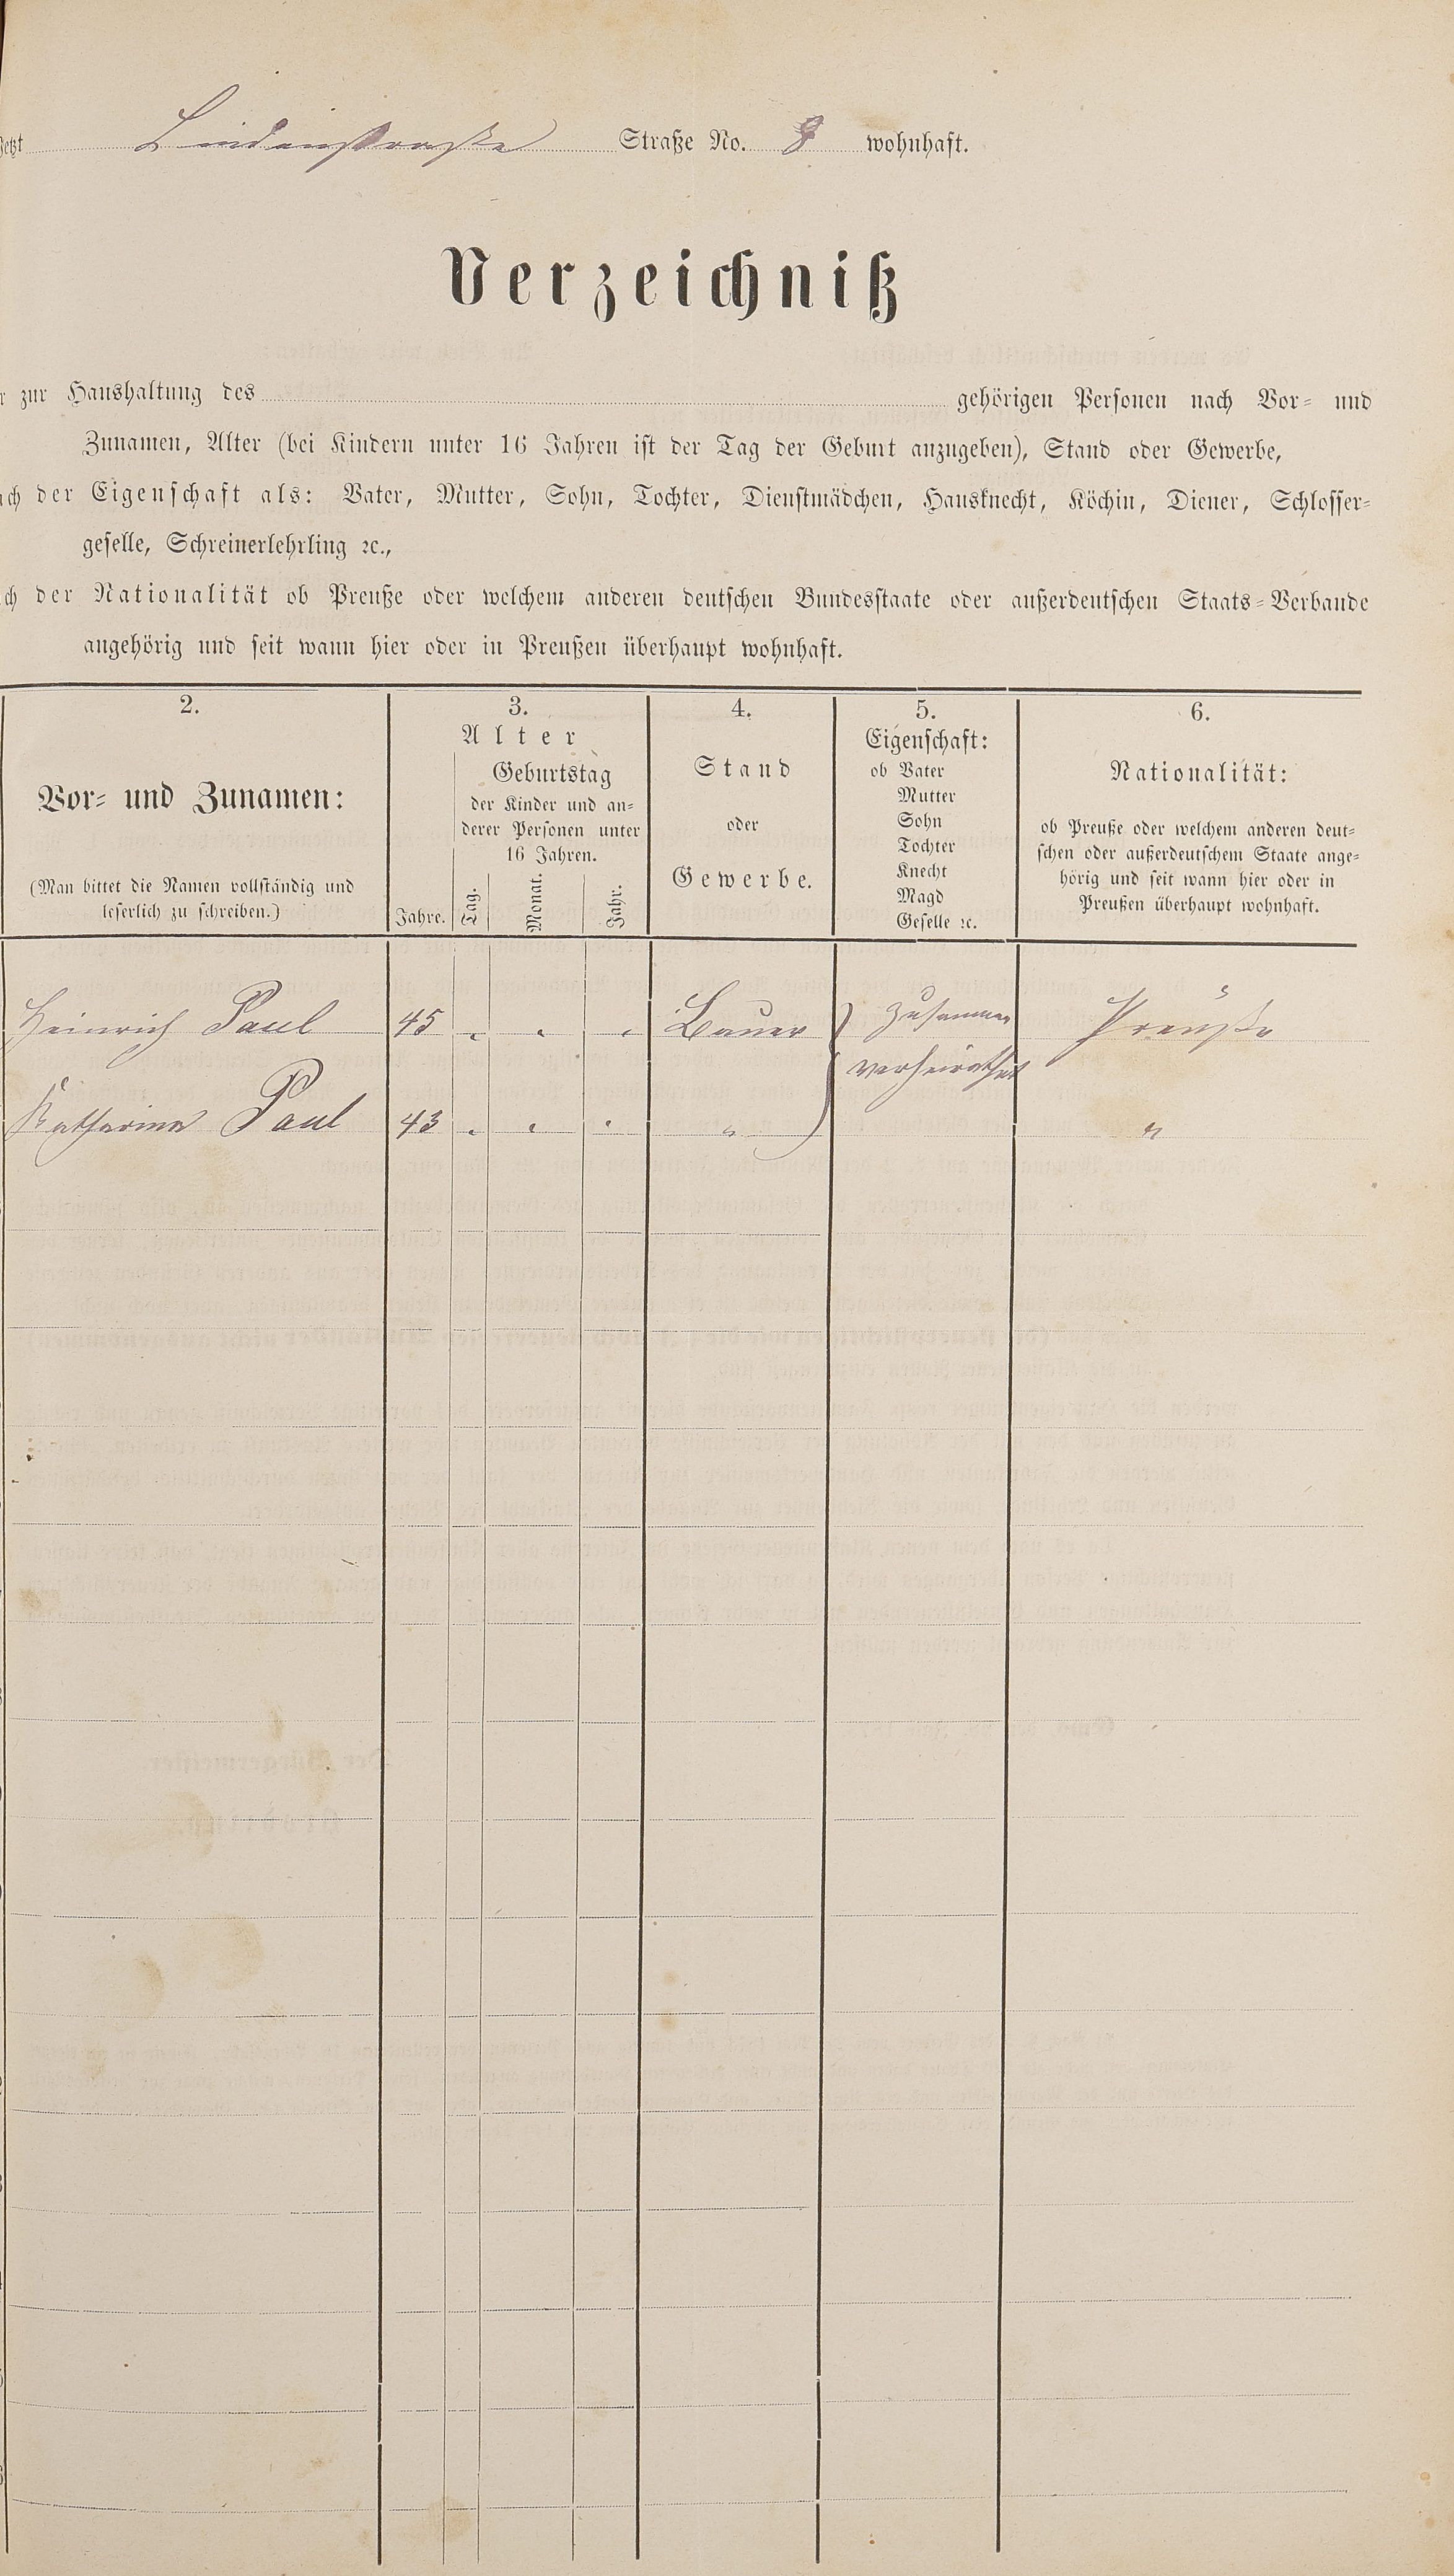 Jetzt Lindenstraße Straße No. 8 wohnhaft.
Verzeichniß
zur Haushaltung des gehörigen Personen nach Vor- und
Zunamen, Alter (bei Kindern unter 16 Jahren ist der Tag der Geburt anzugeben), Stand oder Gewerbe,
der Eigenschaft als: Vater, Mutter, Sohn, Tochter, Dienstmädchen, Hausknecht, Köchin, Diener, Schlosser-
geselle, Schreinerlehrling ꝛc.,
der Nationalität ob Preuße oder welchem anderen deutschen Bundesstaate oder außerdeutschen Staats-Verbande
angehörig und seit wann hier oder in Preußen überhaupt wohnhaft.
2.
Vor- und Zunamen:
(Man bittet die Namen vollständig und
leserlich zu schreiben.)
3.
Alter
Geburtstag
der Kinder und an-
derer Personen unter
16 Jahren.
Jahre. Tag. Monat. Jahr.
4.
Stand
oder
Gewerbe.
5.
Eigenschaft:
ob Vater
Mutter
Sohn
Tochter
Knecht
Magd
Geselle ꝛc.
6.
Nationalität:
ob Preuße oder welchem anderen deut-
schen oder außerdeutschem Staate ange-
hörig und seit wann hier oder in
Preußen überhaupt wohnhaft.
Heinrich Paul 45 " " " Bauer } zusammen Preuße
verheirathet
Katharina Paul 43 " " " " "